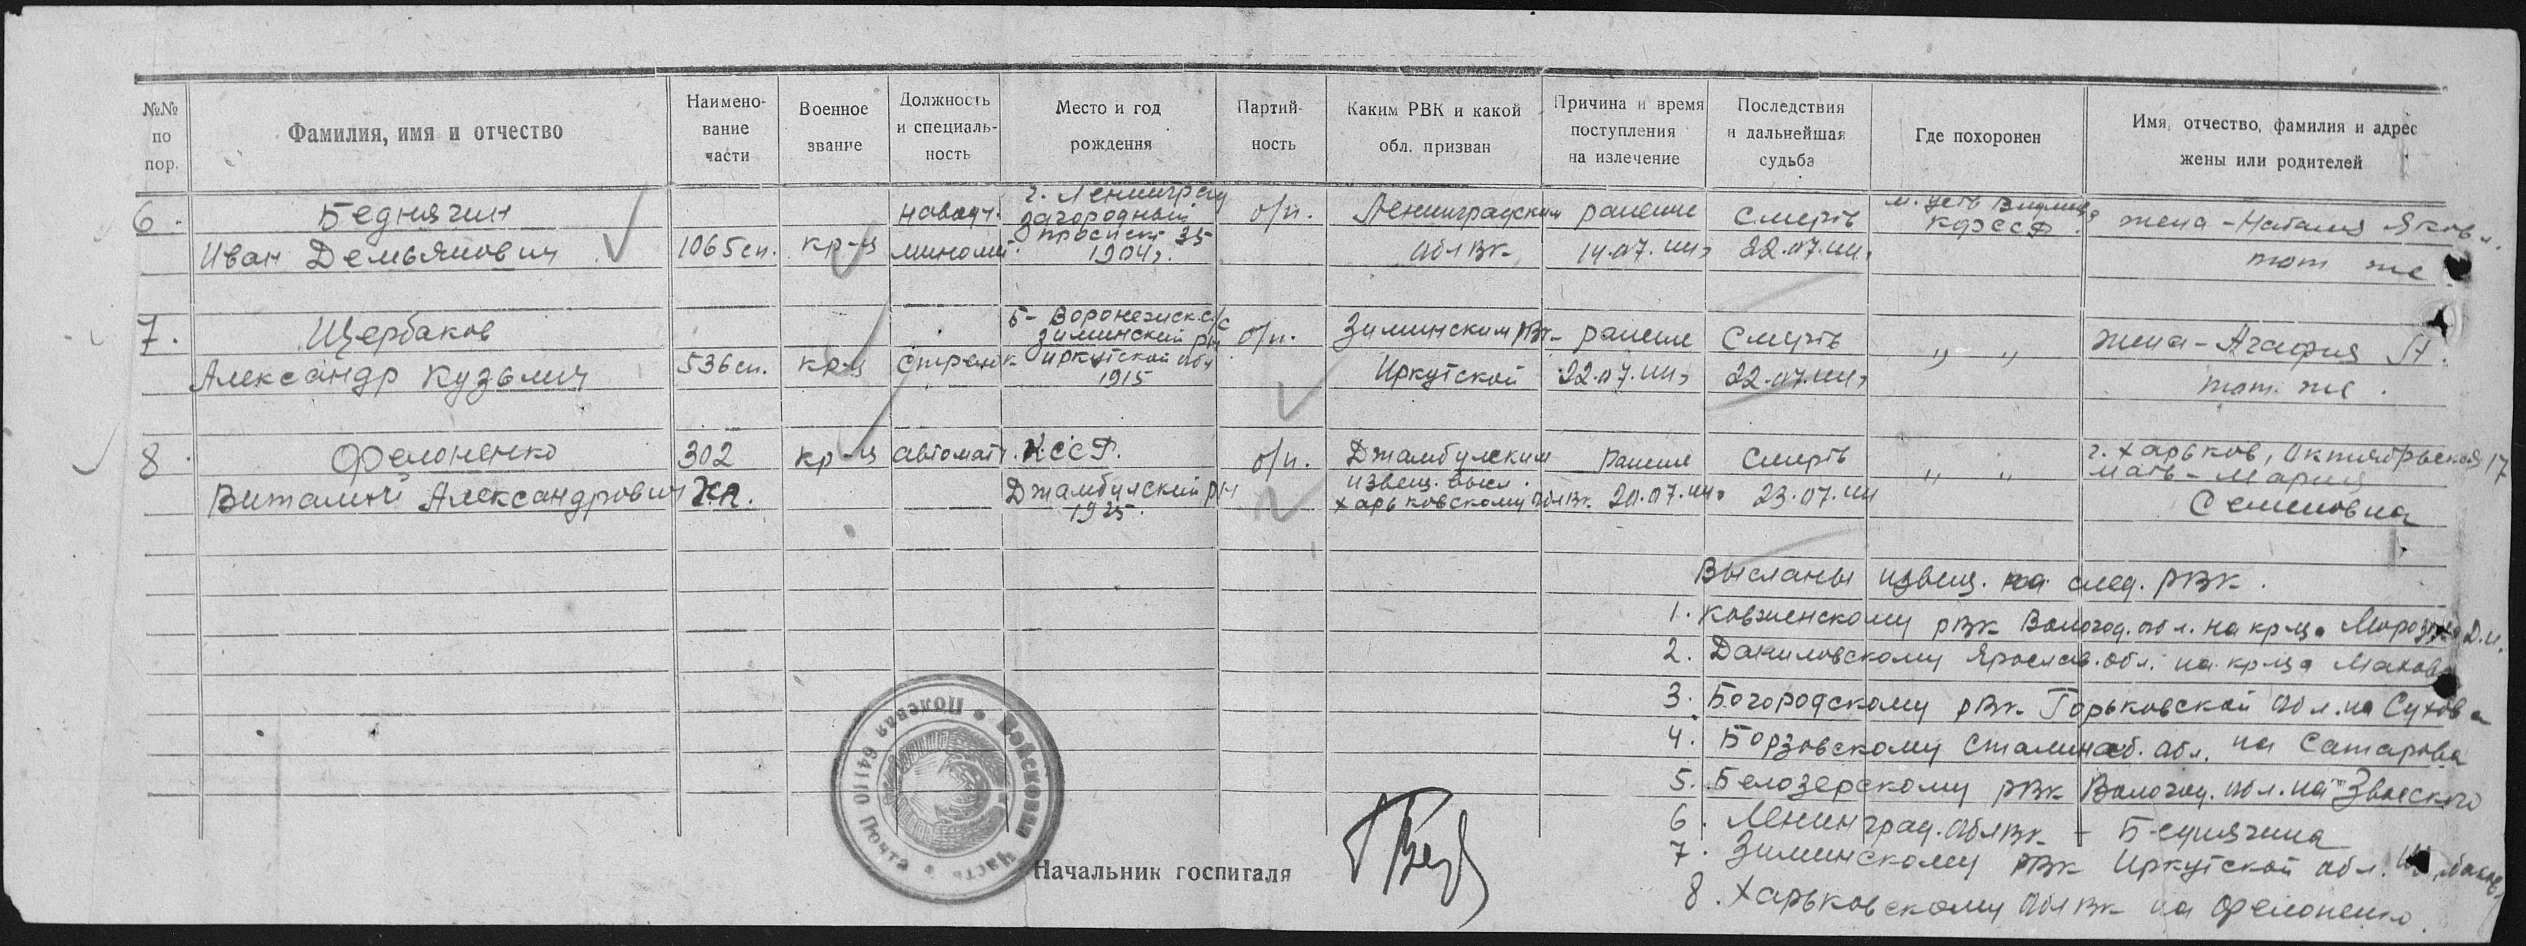 №№ по пор.
Фамилия, имя и отчество
Наимено-вание части
Военное звание
Должность и специаль-ность
Место и год рождения
Партий-ность
Каким РВК и какой обл. призван
Причина и время поступления на излечение
Последствия и дальнейшая судьба
Где похоронен
Имя, отчество, фамилия и адрес жены или родителей
6.
Беднячин
Иван Демьянович
1065 сп.
кр-ц
наводч. миномет.
г. Ленинград
Загородный
проспект 35
1904 г.
б/п.
Ленинградским
Обл ВК
ранение
14.07.44 г
Смерть
22.07.44 г
м. Усть
КФССР.
жена - Наталия Яковл.
там же
7.
Щербаков
Александр Кузьмич
536 сп.
кр-ц
стрелок
Б- Воронежск. с/с
Зиминский рн
Иркутской обл
1915
б/п.
Зиминским РВК
Иркутской
ранение
22.07.44 г
Смерть
22.07.44 г
" "
жена - Агафия П.
там же.
8.
Фелоненко
Виталий Александрович
302
кр-ц
автомат.
К.ССР.
Джамбулский рн
1925.
б/п.
Джамбулским
извещ. высл.
Харьковскому ОблВК.
ранение
20.07.44 г
Смерть
23.07.44
" "
г. Харьков, Октябрьская 17
мать - Мария
Семеновна
Высланы извещ. на след. РВК.
1. Ковженскому РВК Вологод. обл. на кр-ца Морозова Д.И.
2. Даниловскому Ярослав. обл. на кр-ца Махова
3. Богородскому РВК Горьковской обл. на Сухова
4. Борзовскому Сталинаб. обл. на Сатарова
5. Белозерскому РВК Вологод. обл. на
6. Ленинград. ОблВК - Беднячина
7. Зиминскому РВК Иркутской обл. Щербаков
8. Харьковскому ОблВК на Фелоненко.
Войсковая часть • Полевая почта 64110
Начальник госпиталя